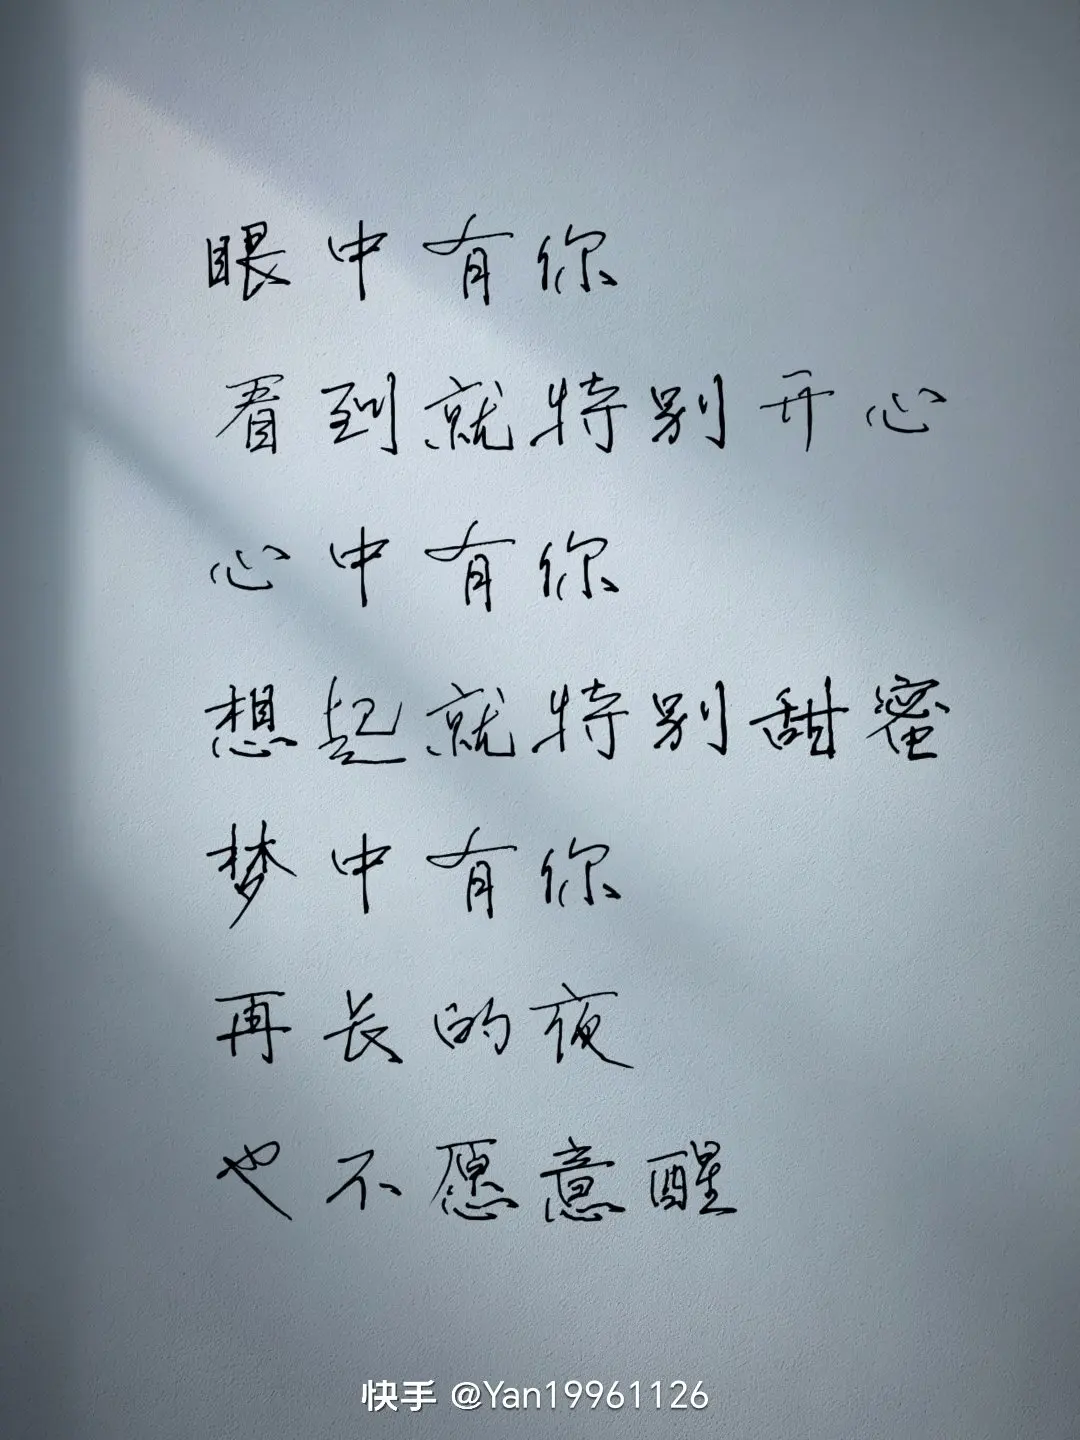 眼中有你
看到就特别开心
心中有你
想起就特别甜蜜
梦中有你
再长的夜
也不愿意醒
快手 @Yan19961126